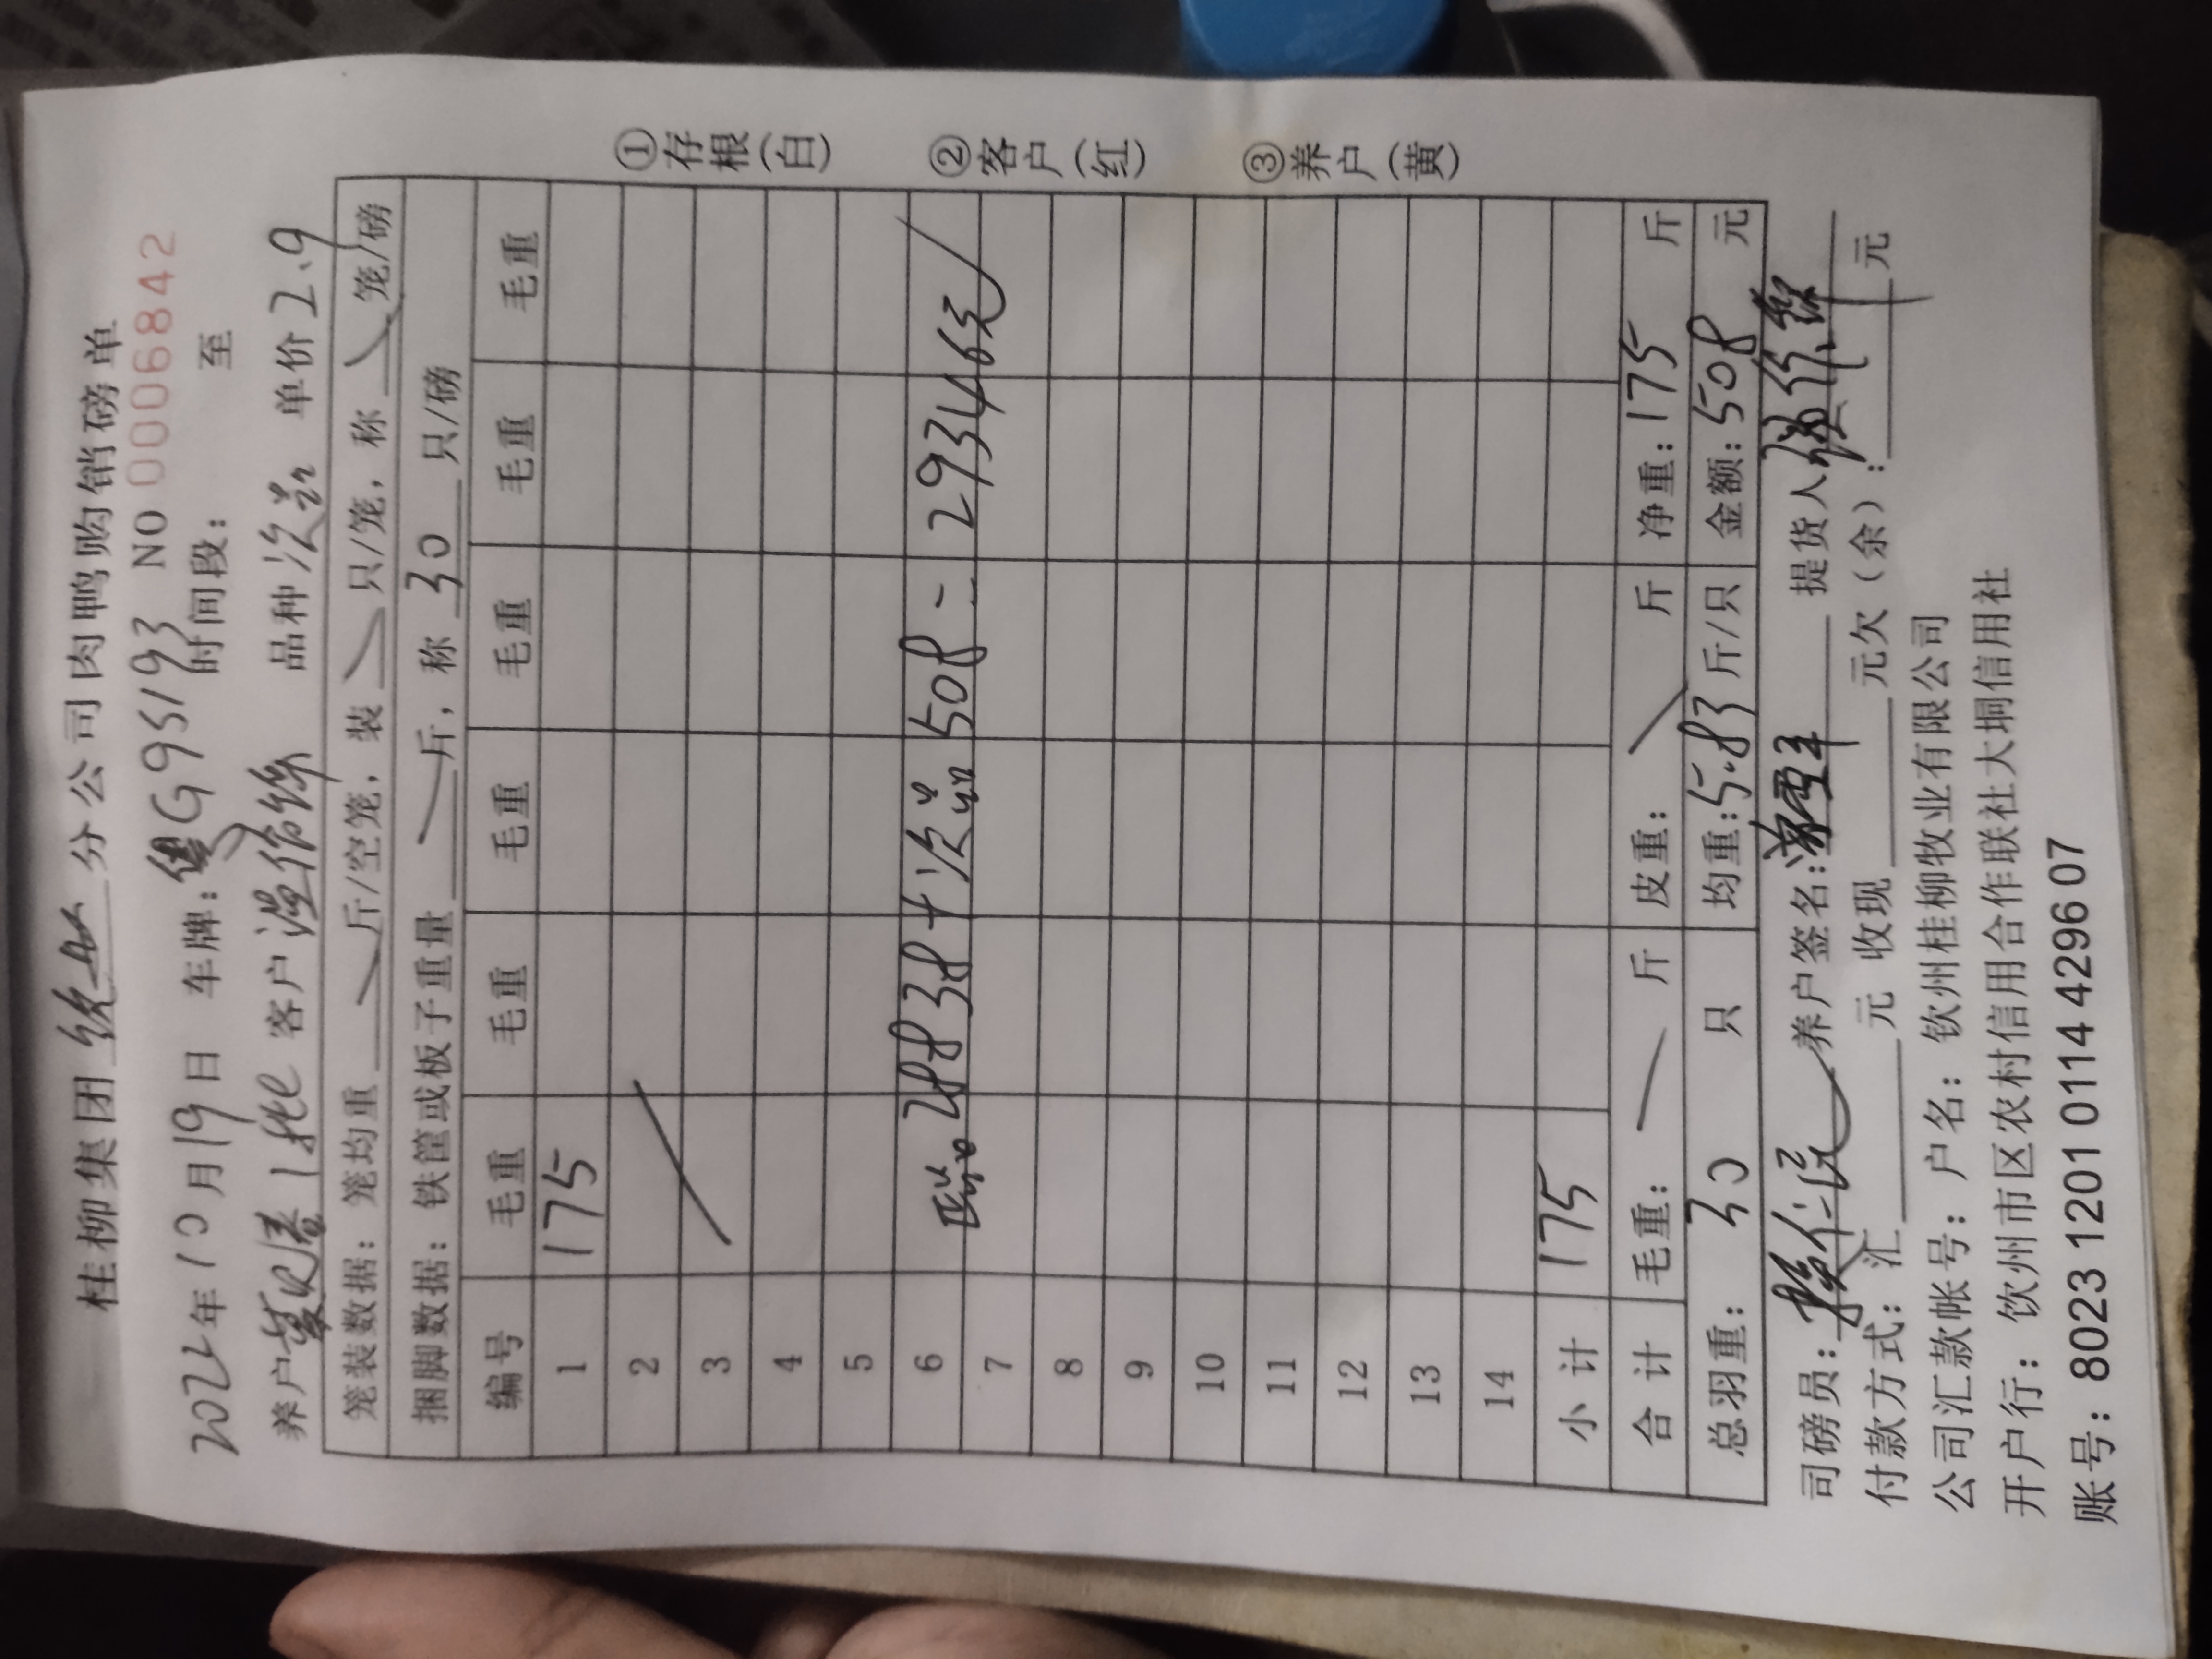 桂柳集团 分公司肉鸭购销磅单
2022年10月19日 车牌: G95193 NO 0006842
时间段: 至
养户 客户 温作锦 品种 次品 单价 2.9
笼装数据: 笼均重 斤/空笼, 装 只/笼, 称 笼/磅
捆脚数据: 铁筐或板子重量 斤, 称 30 只/磅
编号 毛重 毛重 毛重 毛重 毛重 毛重
1 175
2
3
4
5
6 28838+次品508= 293466元
7
8
9
10
11
12
13
14
小计 175
合计 毛重: 斤 皮重: 斤 净重: 175 斤
总羽重: 30 只 均重: 5.83 斤/只 金额: 508 元
司磅员: 养户签名: 提货人
付款方式: 汇 元 收现 元欠(余): 元
公司汇款帐号: 户名: 钦州桂柳牧业有限公司
开户行: 钦州市区农村信用合作联社大垌信用社
账号: 8023 1201 0114 4296 07
①存根(白)
②客户(红)
③养户(黄)